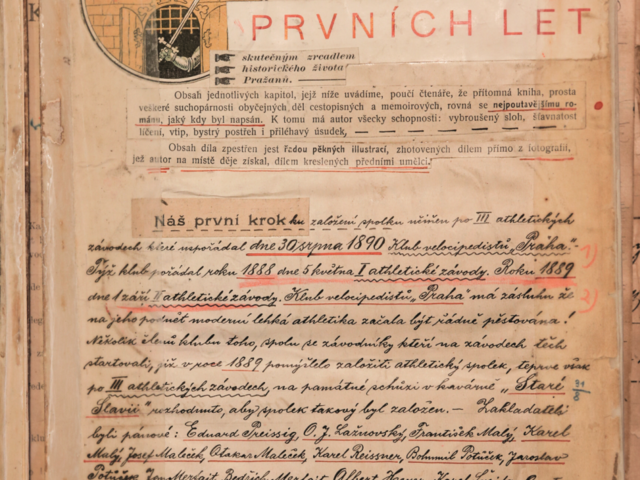 PRVNÍCH LET
skutečným zrcadlem
historického života
Pražanů.
Obsah jednotlivých kapitol, jejž níže uvádíme, poučí čtenáře, že přítomná kniha, prosta
veškeré suchopárnosti obyčejných děl cestopisných a memoirových, rovná se nejpoutavějšímu ro-
mánu, jaký kdy byl napsán. K tomu má autor všecky schopnosti: vybroušený sloh, šťavnatost
líčení, vtip, bystrý postřeh i přiléhavý úsudek,
Obsah díla zpestřen jest řadou pěkných illustrací, zhotovených dílem přímo z fotografií,
jež autor na místě děje získal, dílem kreslených předními umělci.
Náš první krok ku založení spolku učiněn po III athletických
závodech které uspořádal dne 30 srpna 1890 Klub velocipedistů „Praha".
Týž klub pořádal roku 1888 dne 5 května I athletické závody. Roku 1889 1)
dne 1 září II athletické závody. Klub velocipedistů „Praha" má zásluhu že 2)
na jeho podnět moderní lehká athletika začala být řádně pěstována!
Několik členů klubu toho, spolu se závodníky kteří na závodech těch
startovali, již v roce 1889 pomýšlelo založiti athletický spolek, teprve však
po III athletických závodech, na památné schůzi v kavárně „Staré
Slavii" rozhodnuto, aby spolek takový byl založen. — Zakladateli
byli pánové: Eduard Preissig, O. J. Lažnovský, František Malý, Karel
Malý, Josef Maleček, Otakar Maleček, Karel Reissner, Bohumil Potůček, Jaroslav